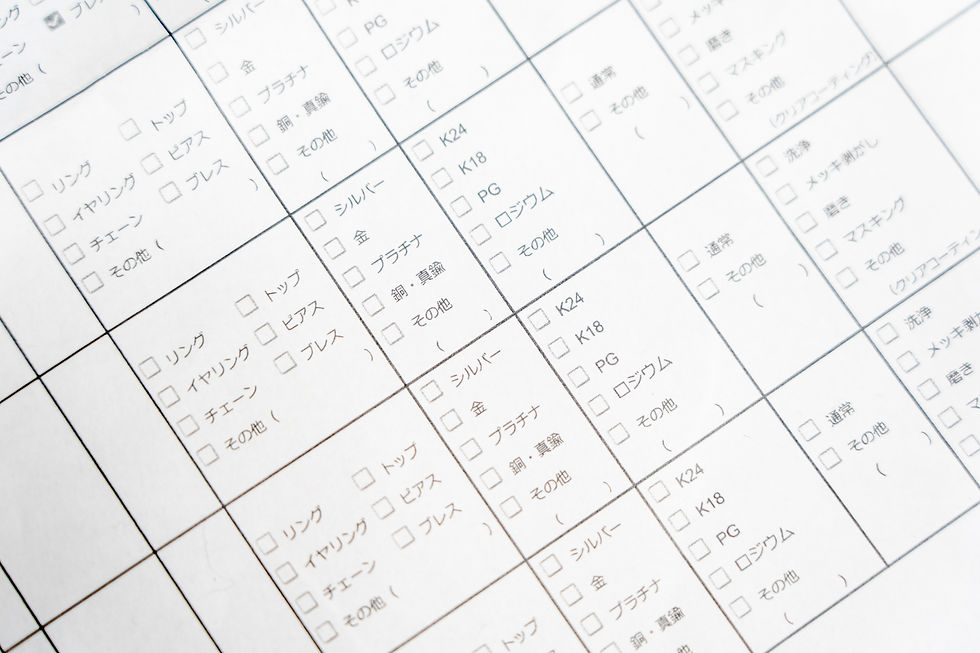 その他 (
トップ
リング ピアス
イヤリング ブレス
チェーン
その他 ( )
シルバー
金
プラチナ
銅・真鍮
その他
( )
PG
ロジウム
その他
( )
トップ
リング ピアス
イヤリング ブレス
チェーン
その他 ( )
シルバー
金
プラチナ
銅・真鍮
その他
( )
K24
K18
PG
ロジウム
その他
( )
通常
その他
( )
磨き
マスキング
その他
(クリアコーティング)
トップ
リング ピアス
イヤリング ブレス
チェーン
その他 ( )
シルバー
金
プラチナ
銅・真鍮
その他
( )
K24
K18
PG
ロジウム
その他
( )
通常
その他
( )
洗浄
メッキ剥がし
磨き
マスキング
その他
(クリアコーティン
トップ
シルバー
金
プラチナ
銅・真鍮
K24
K18
PG
ロジウム
その他
( )
通常
その他
( )
洗浄
メッキ剥が
磨き